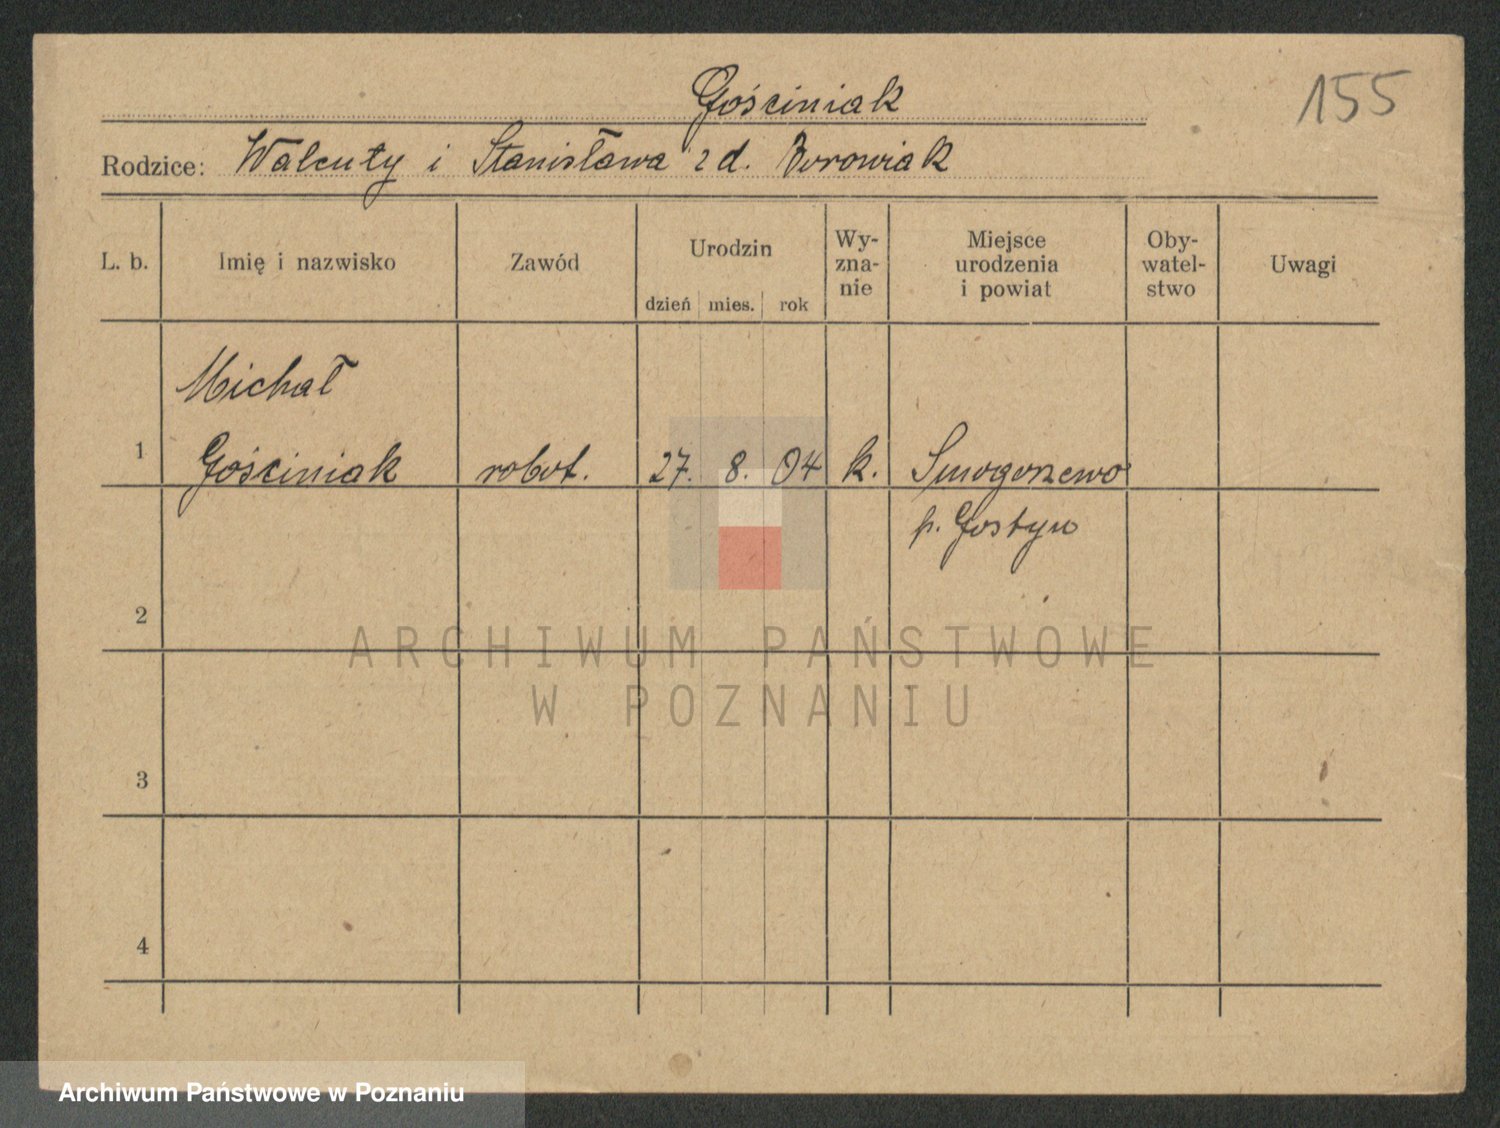 Gościniak
155
Rodzice: Walenty i Stanisława z d. Borowiak
L. b. Imię i nazwisko Zawód Urodzin dzień mies. rok Wy-zna-nie Miejsce urodzenia i powiat Oby-watel-stwo Uwagi
Michał
1 Gościniak robot. 27. 8. 04 k. Smogorzewo
p. Gostyń
2
ARCHIWUM PAŃSTWOWE
W POZNANIU
3
4
Archiwum Państwowe w Poznaniu